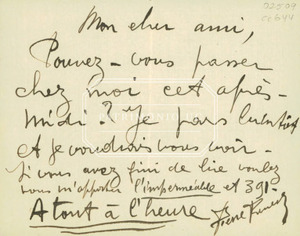 Mon cher ami,
Pouvez-vous passer
chez moi cet après-
midi? Je pars bientôt
et je voudrais vous voir.
Si vous avez fini de lire voulez
vous m'apporter l'imperméable et 391.
A tout à l'heure